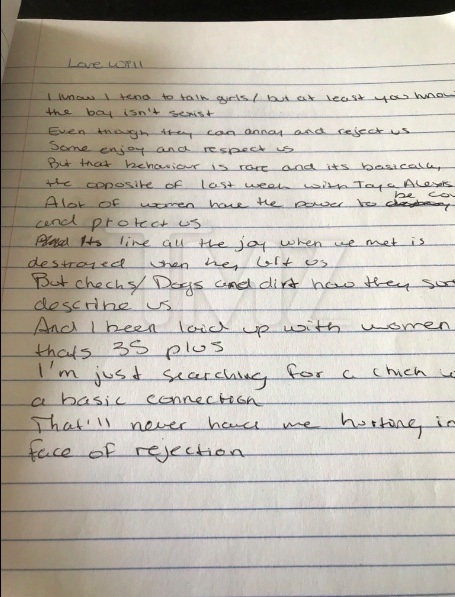 Love Will
I know I tend to talk girls / but at least you know
the boy isn't sexist
Even though they can annoy and reject us
Some enjoy and respect us
But that behaviour is rare and its basically
the opposite of last week with Alexis
Alot of women have the power to be
and protect us
Its like all the joy when we met is
destroyed when they left us
But checks/Dogs and dirt how they
describe us
And I been laid up with women
thats 35 plus
I'm just searching for a chick
a basic connection
That'll never have me hurting in
face of rejection
TMZ